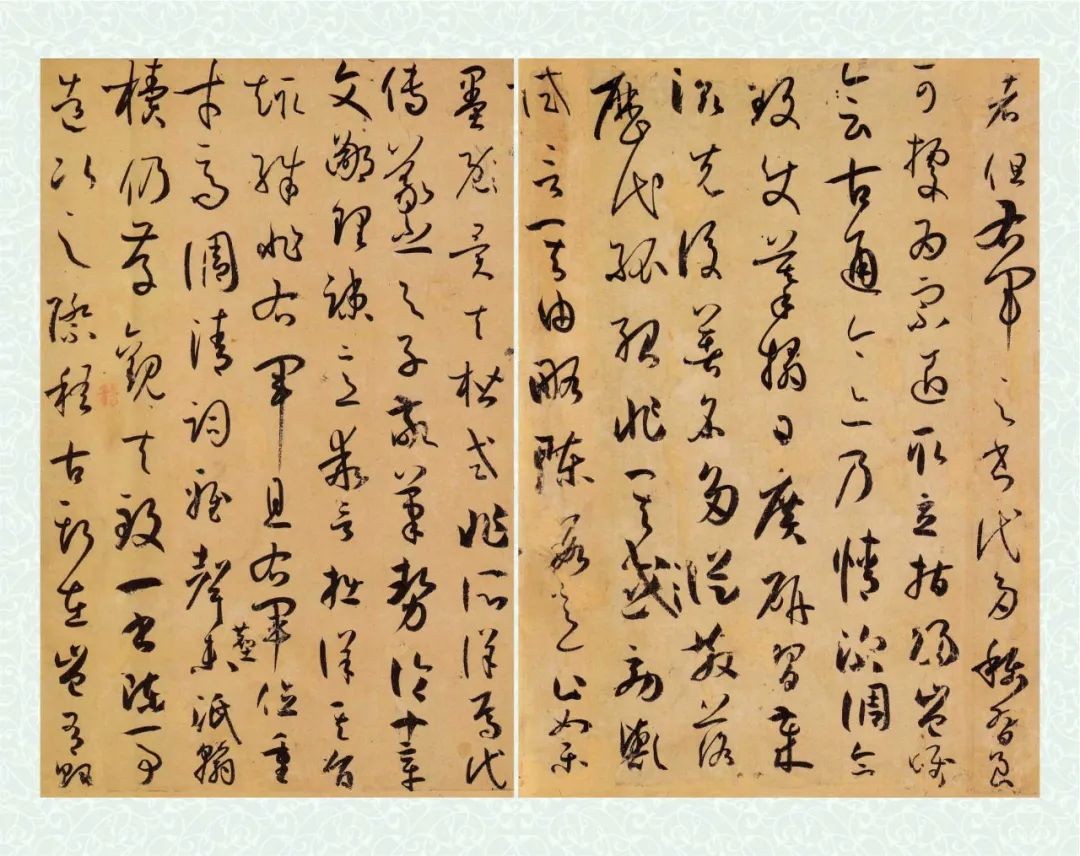 者但右軍之書代多稱習良
可據為宗匠取立指歸豈唯
會古通今亦乃情深調合
致使摹搨日廣研習歲
滋先後著名多從散落
歷代孤紹非其效歟
試言其由略陳數意止如樂
墨異夫楷式非所詳焉代
傳羲之与子敬筆勢論十章
文鄙理疎意乖言拙詳其旨
趣殊非右軍且右軍位重
才高調清詞雅聲塵未泯翰
牘仍存觀夫致一書陳一事
造次之際稽古斯在豈有貽